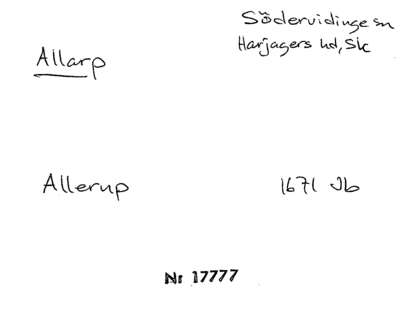 Södervidinge sn
Harjagers hd, Sk
Allarp
Allerup 1671 Jb
Nr 17777